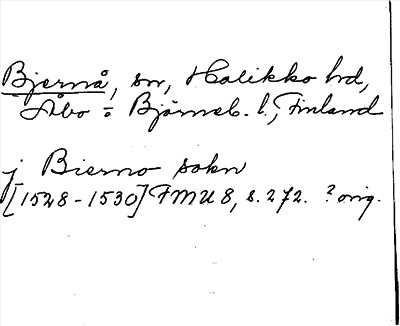 Bjernå, sn, Halikko hd,
Åbo = Björneb. l., Finland
j Bierno sokn
[1528-1530] FMU 8, s. 272. ? orig.